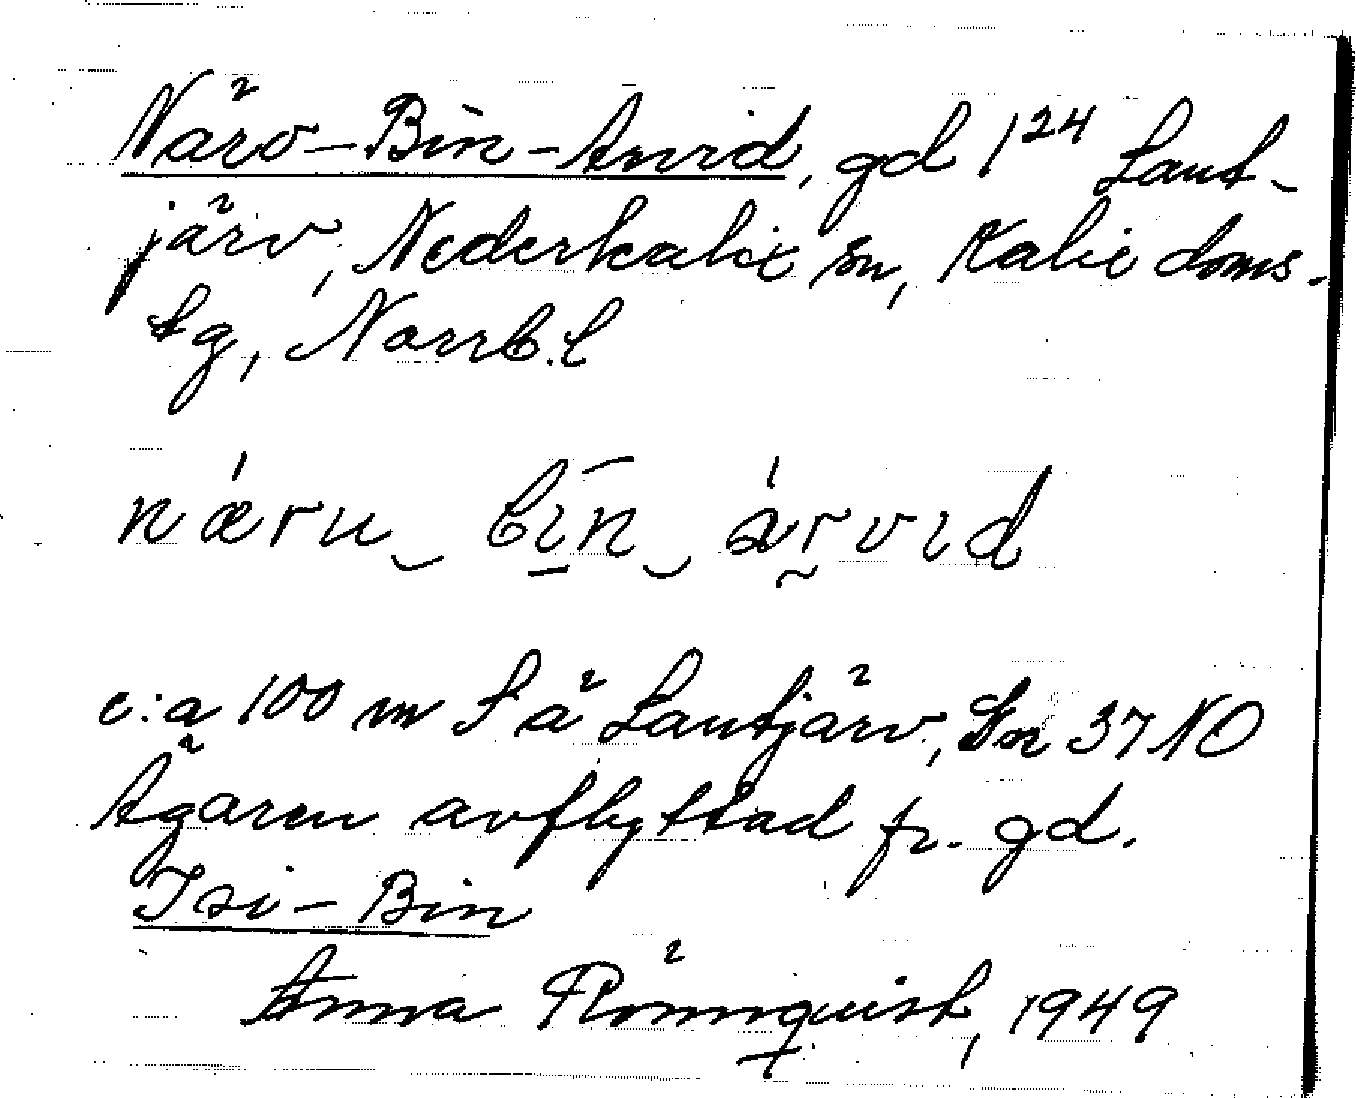 Närv-Bin-Arvid, gd 1²⁴ Laut-
järv, Nederkalix sn, Kalix doms-
sg, Norrb. l
næru‿ bīn‿ árvid
c:a 100 m S ä Lautjärv, Sn 37 NO
Ägaren avflyttad fr. gd.
Isi-Bin
Anna Rönnquist, 1949